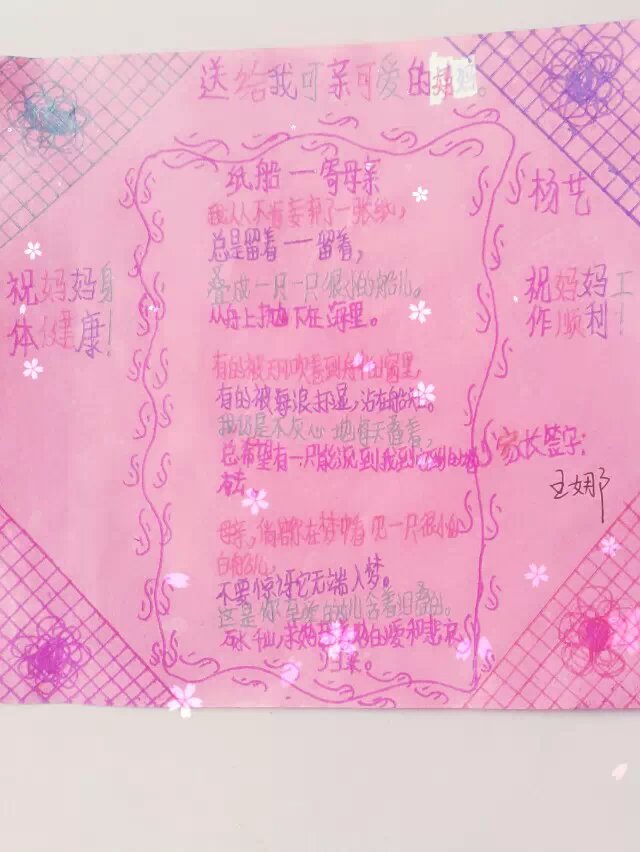 送给我可亲可爱的妈妈。
纸船一寄母亲
我从不肯妄弃了一张纸,
总是留着一留着,
叠成一只一只很小的船儿。
从舟上抛下在海里。
有的被天风吹卷到舟中的窗里,
有的被海浪打湿,沾在船头上。
我仍是不灰心地每天叠着,
总希望有一只能流到我到的地
方去
母亲,倘若你在梦中看见一只很小的
白船儿,
不要惊讶它无端入梦。
这是你至爱的女儿含着泪叠的。
万水千山,求它载着她的爱和悲哀
归来。
杨艺
祝妈妈身
体健康!
祝妈妈工
作顺利!
家长签字:
王娜